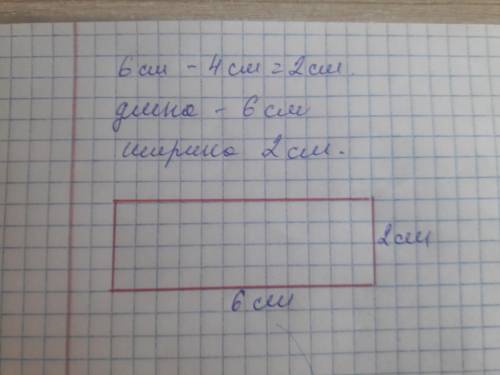 6см - 4см = 2см.
длина - 6см
ширина 2см.
2см
6см